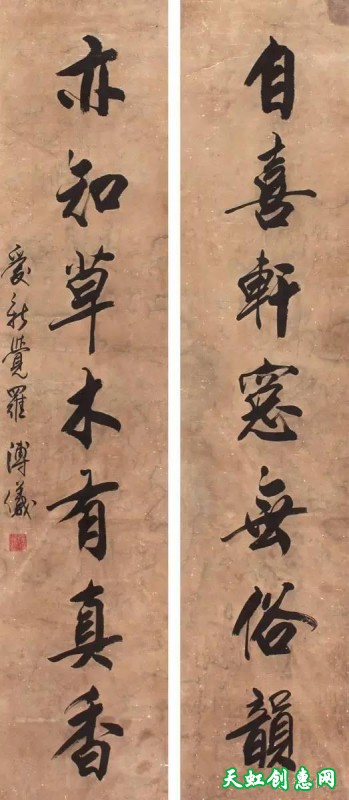 自喜軒窓無俗韻
亦知草木有真香
愛新覺羅 溥儀
天虹创惠网